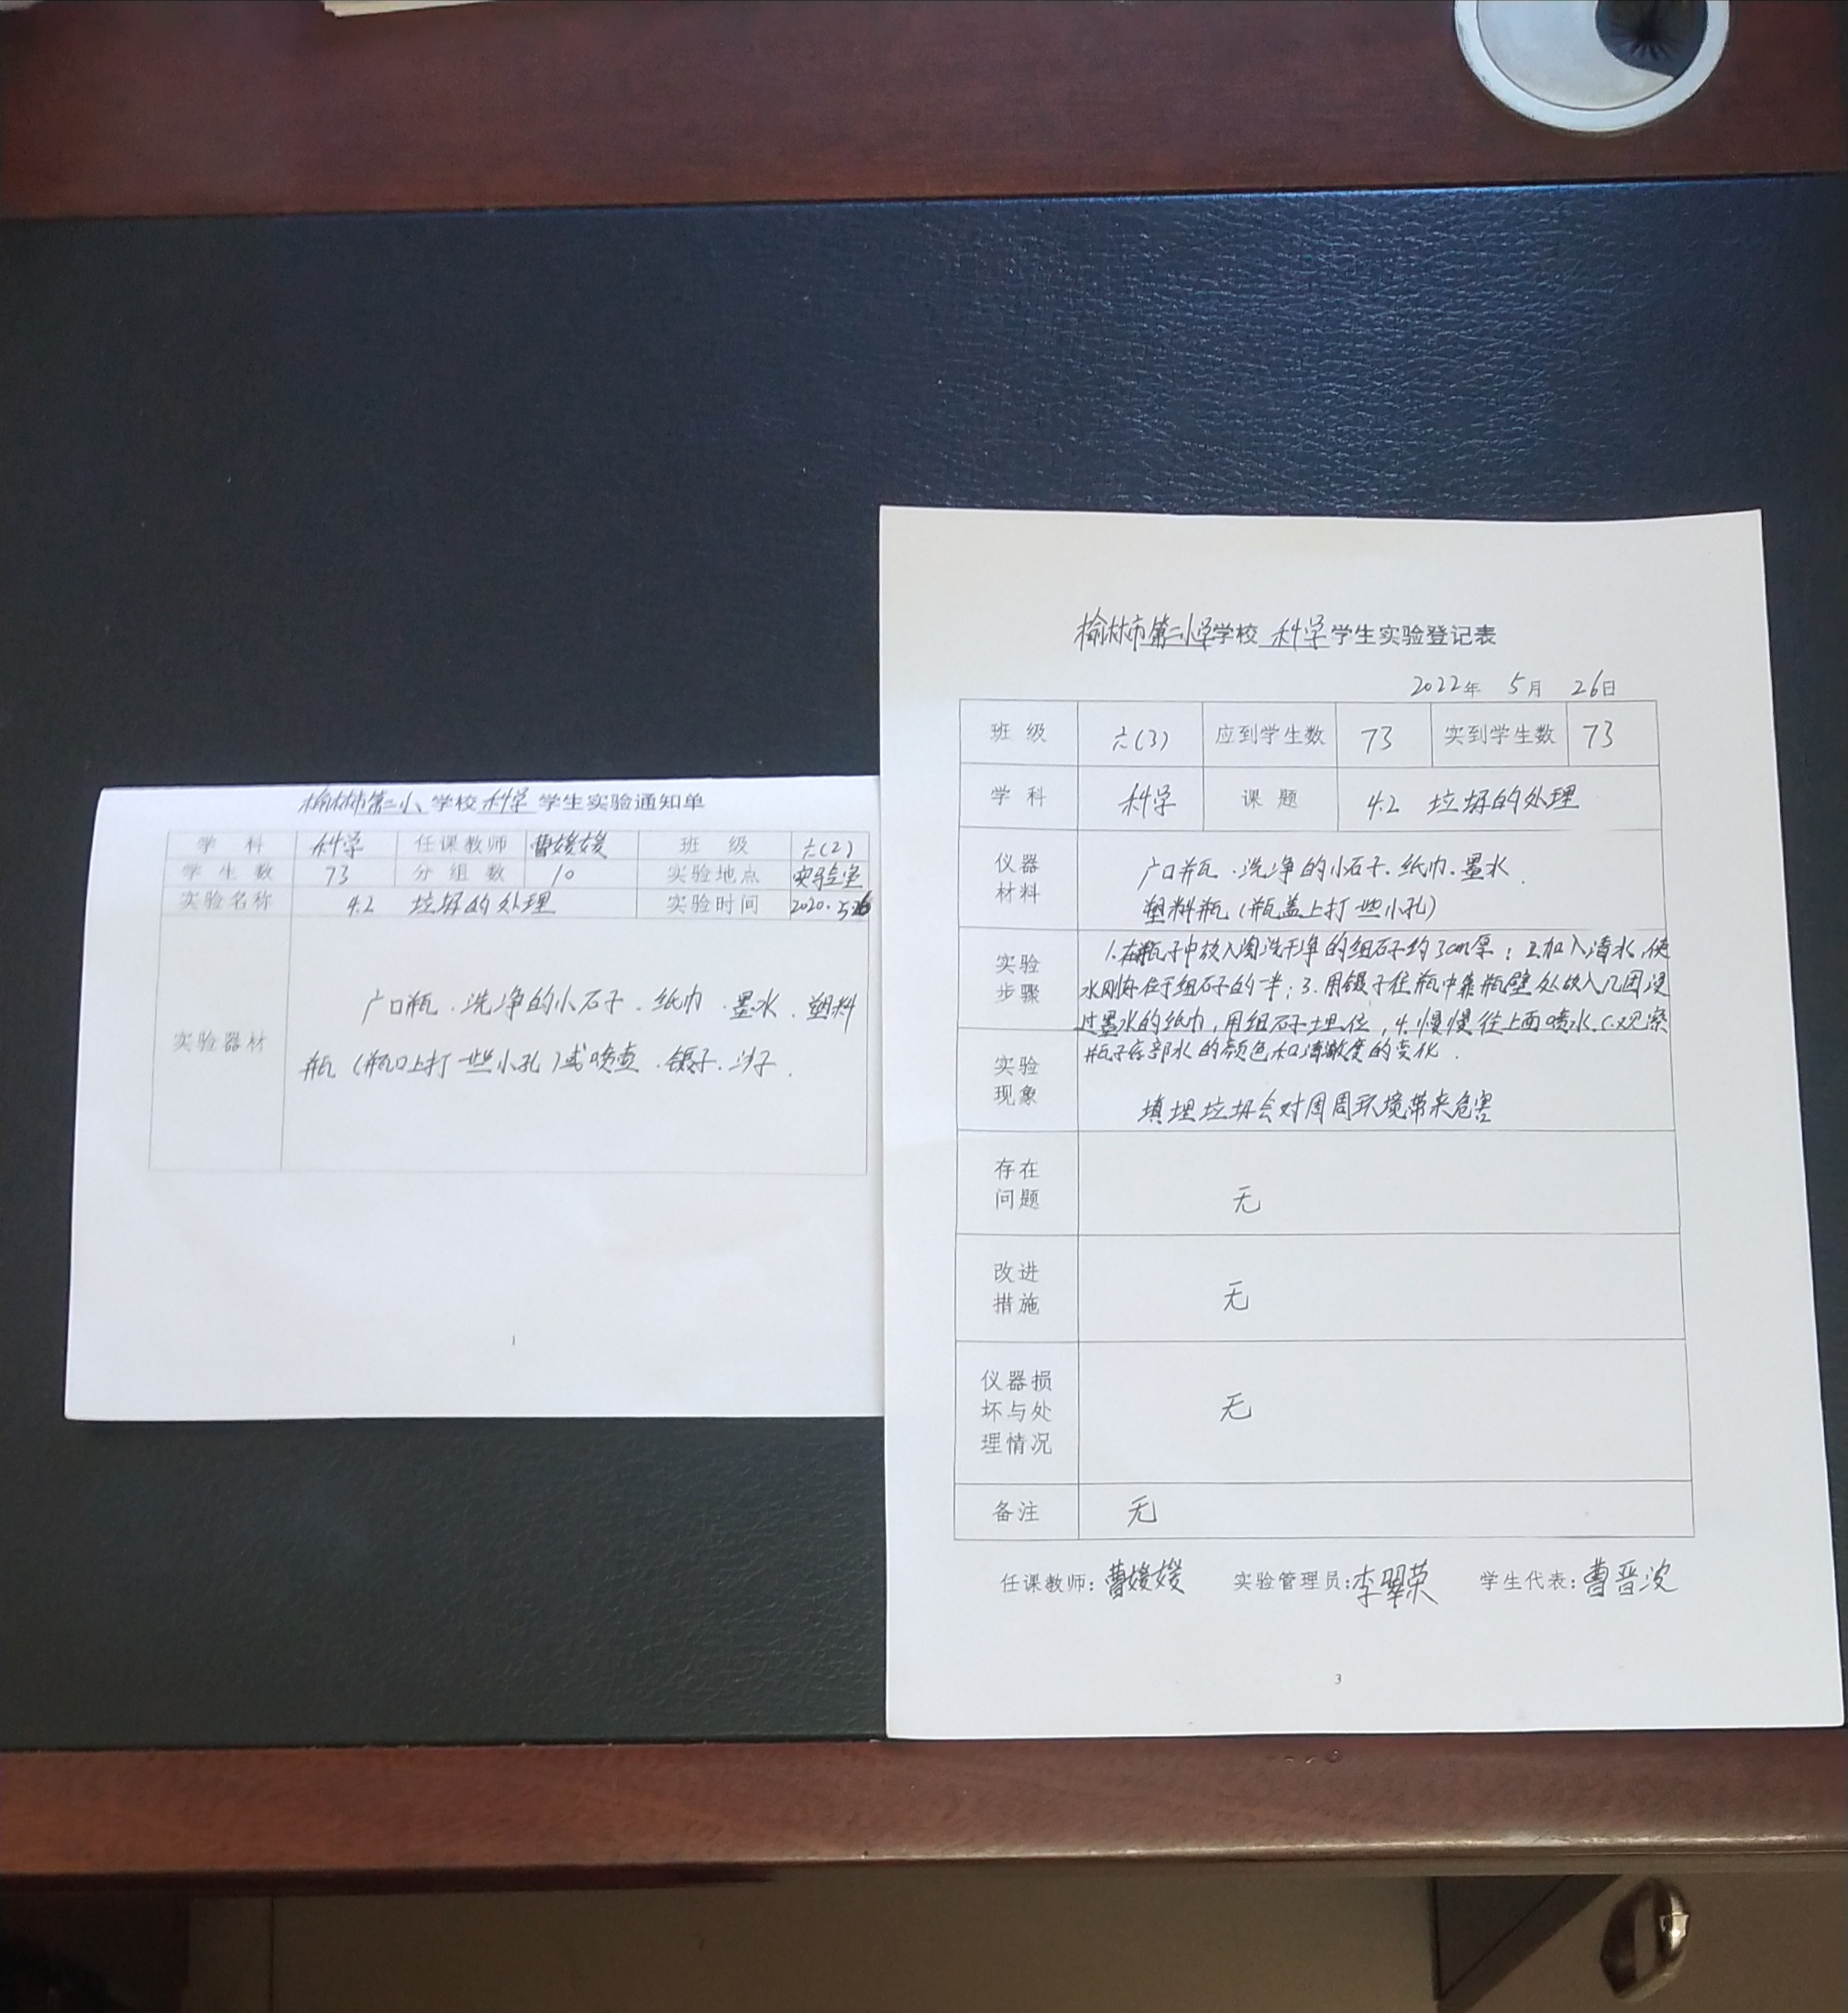 榆林市第二小学校 科学 学生实验通知单
学 科 科学 任课教师 曹媛媛 班 级 六(2)
学 生 数 73 分 组 数 10 实验地点 实验室
实验名称 4.2 垃圾的处理 实验时间 2020.5.26
实验器材
广口瓶、洗净的小石子、纸巾、墨水、塑料
瓶(瓶口上打一些小孔)或喷壶、镊子、沙子.
1
榆林市第二小学学校 科学 学生实验登记表
2022年 5月 26日
班 级 六(3) 应到学生数 73 实到学生数 73
学 科 科学 课 题 4.2 垃圾的处理
仪器
材料
广口瓶、洗净的小石子、纸巾、墨水、
塑料瓶(瓶盖上打一些小孔)
实验
步骤
1.在瓶子中放入淘洗干净的组石子约3cm厚;2.加入清水,使
水刚好位于组石子的一半;3.用镊子在瓶中靠瓶壁处放入几团浸
过墨水的纸巾,用组石子埋位,4.慢慢往上面喷水.观察
瓶子底部水的颜色和清澈度的变化.
实验
现象
填埋垃圾会对周围环境带来危害
存在
问题
无
改进
措施
无
仪器损
坏与处
理情况
无
备注 无
任课教师:曹媛媛 实验管理员:李翠荣 学生代表:曹晋波
3